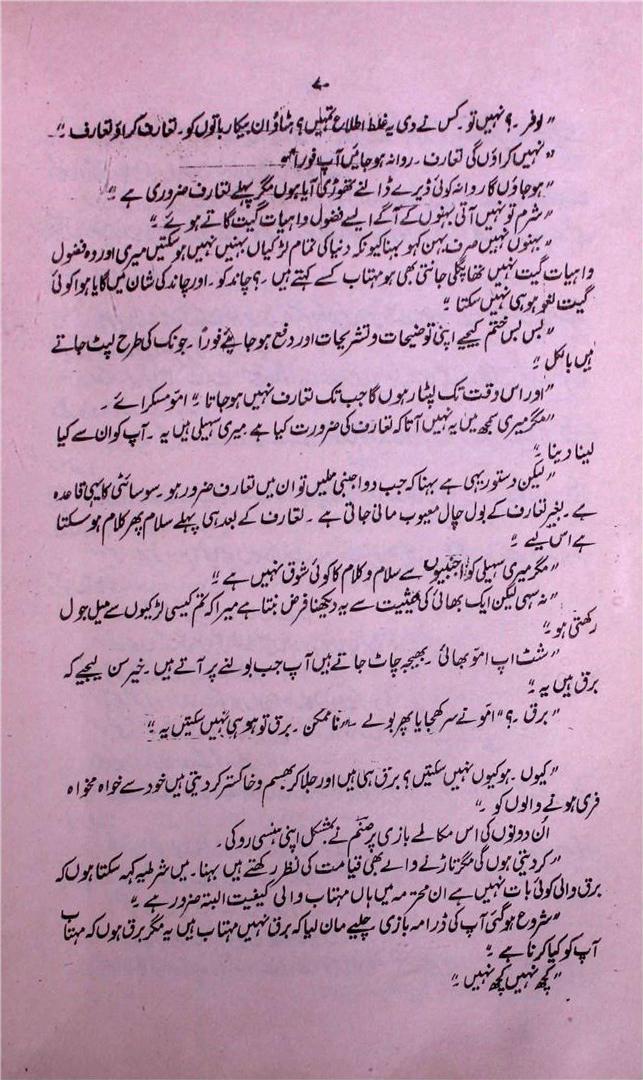 ۷
"لوفر۔؟ نہیں تو۔ کس نے دی یہ غلط اطلاع تمہیں؟ ہٹاؤ ان بیکار باتوں کو۔ تعارف کراؤ تعارف۔"
"نہیں کراؤں گی تعارف۔ روانہ ہو جائیں آپ فوراً
"ہو جاؤں گا روانہ کوئی ڈیرے ڈالنے تھوڑی آیا ہوں مگر پہلے تعارف ضروری ہے۔"
"شرم تو نہیں آتی بہنوں کے آگے ایسے فضول واہیات گیت گاتے ہوئے۔"
"بہنوں نہیں صرف بہن کہو بہنا کیونکہ دنیا کی تمام لڑکیاں بہنیں نہیں ہو سکتیں میری اور وہ فضول
واہیات گیت نہیں تھا پگلی جانتی بھی ہو مہتاب کسے کہتے ہیں۔؟ چاند کو۔ اور چاند کی شان میں گایا ہوا کوئی
گیت لغو ہو ہی نہیں سکتا۔"
"بس بس ختم کیجیے اپنی توضیحات و تشریحات اور دفع ہو جایئے فوراً۔ جونک کی طرح لپٹ جاتے
ہیں بالکل۔"
"اور اس وقت تک لپٹا رہوں گا جب تک تعارف نہیں ہو جاتا۔" امّو مسکرائے۔
"مگر میری سمجھ میں یہ نہیں آتا کہ تعارف کی ضرورت کیا ہے میری سہیلی ہیں یہ۔ آپ کو ان سے کیا
لینا دینا۔"
"لیکن دستور یہی ہے بہنا کہ جب دو اجنبی ملیں تو ان میں تعارف ضرور ہو۔ سوسائٹی کا یہی قاعدہ
ہے۔ بغیر تعارف کے بول چال معیوب مانی جاتی ہے۔ تعارف کے بعد ہی پہلے سلام پھر کلام ہو سکتا
ہے اس لیے۔"
"مگر میری سہیلی کو اجنبیوں سے سلام و کلام کا کوئی شوق نہیں ہے۔"
"نہ سہی لیکن ایک بھائی کی حیثیت سے یہ دیکھنا فرض بنتا ہے میرا کہ تم کیسی لڑکیوں سے میل جول
رکھتی ہو۔"
"شٹ اپ امّو بھائی۔ بھیجہ چاٹ جاتے ہیں آپ جب بولنے پر آتے ہیں۔ خیر سن لیجیے کہ
برق ہیں یہ۔"
"برق۔؟" امّو نے سر کھجایا پھر بولے۔ "ناممکن۔ برق تو ہو ہی نہیں سکتیں یہ۔"
"کیوں۔ ہو کیوں نہیں سکتیں؟ برق ہی ہیں اور جلا کر بھسم و خاکستر کر دیتی ہیں خود سے خواہ مخواہ
فری ہونے والوں کو۔"
اُن دونوں کی اس مکالمے بازی پر صنم نے بمشکل اپنی ہنسی روکی۔
"کر دیتی ہوں گی مگر تاڑنے والے بھی قیامت کی نظر رکھتے ہیں بہنا۔ میں شرطیہ کہہ سکتا ہوں کہ
برق والی کوئی بات نہیں ہے ان محترمہ میں ہاں مہتاب والی کیفیت البتہ ضرور ہے۔"
"شروع ہو گئی آپ کی ڈرامہ بازی چلیے مان لیا کہ برق نہیں مہتاب ہیں یہ مگر برق ہوں کہ مہتاب
آپ کو کیا کرنا ہے۔"
"کچھ نہیں کچھ نہیں۔"